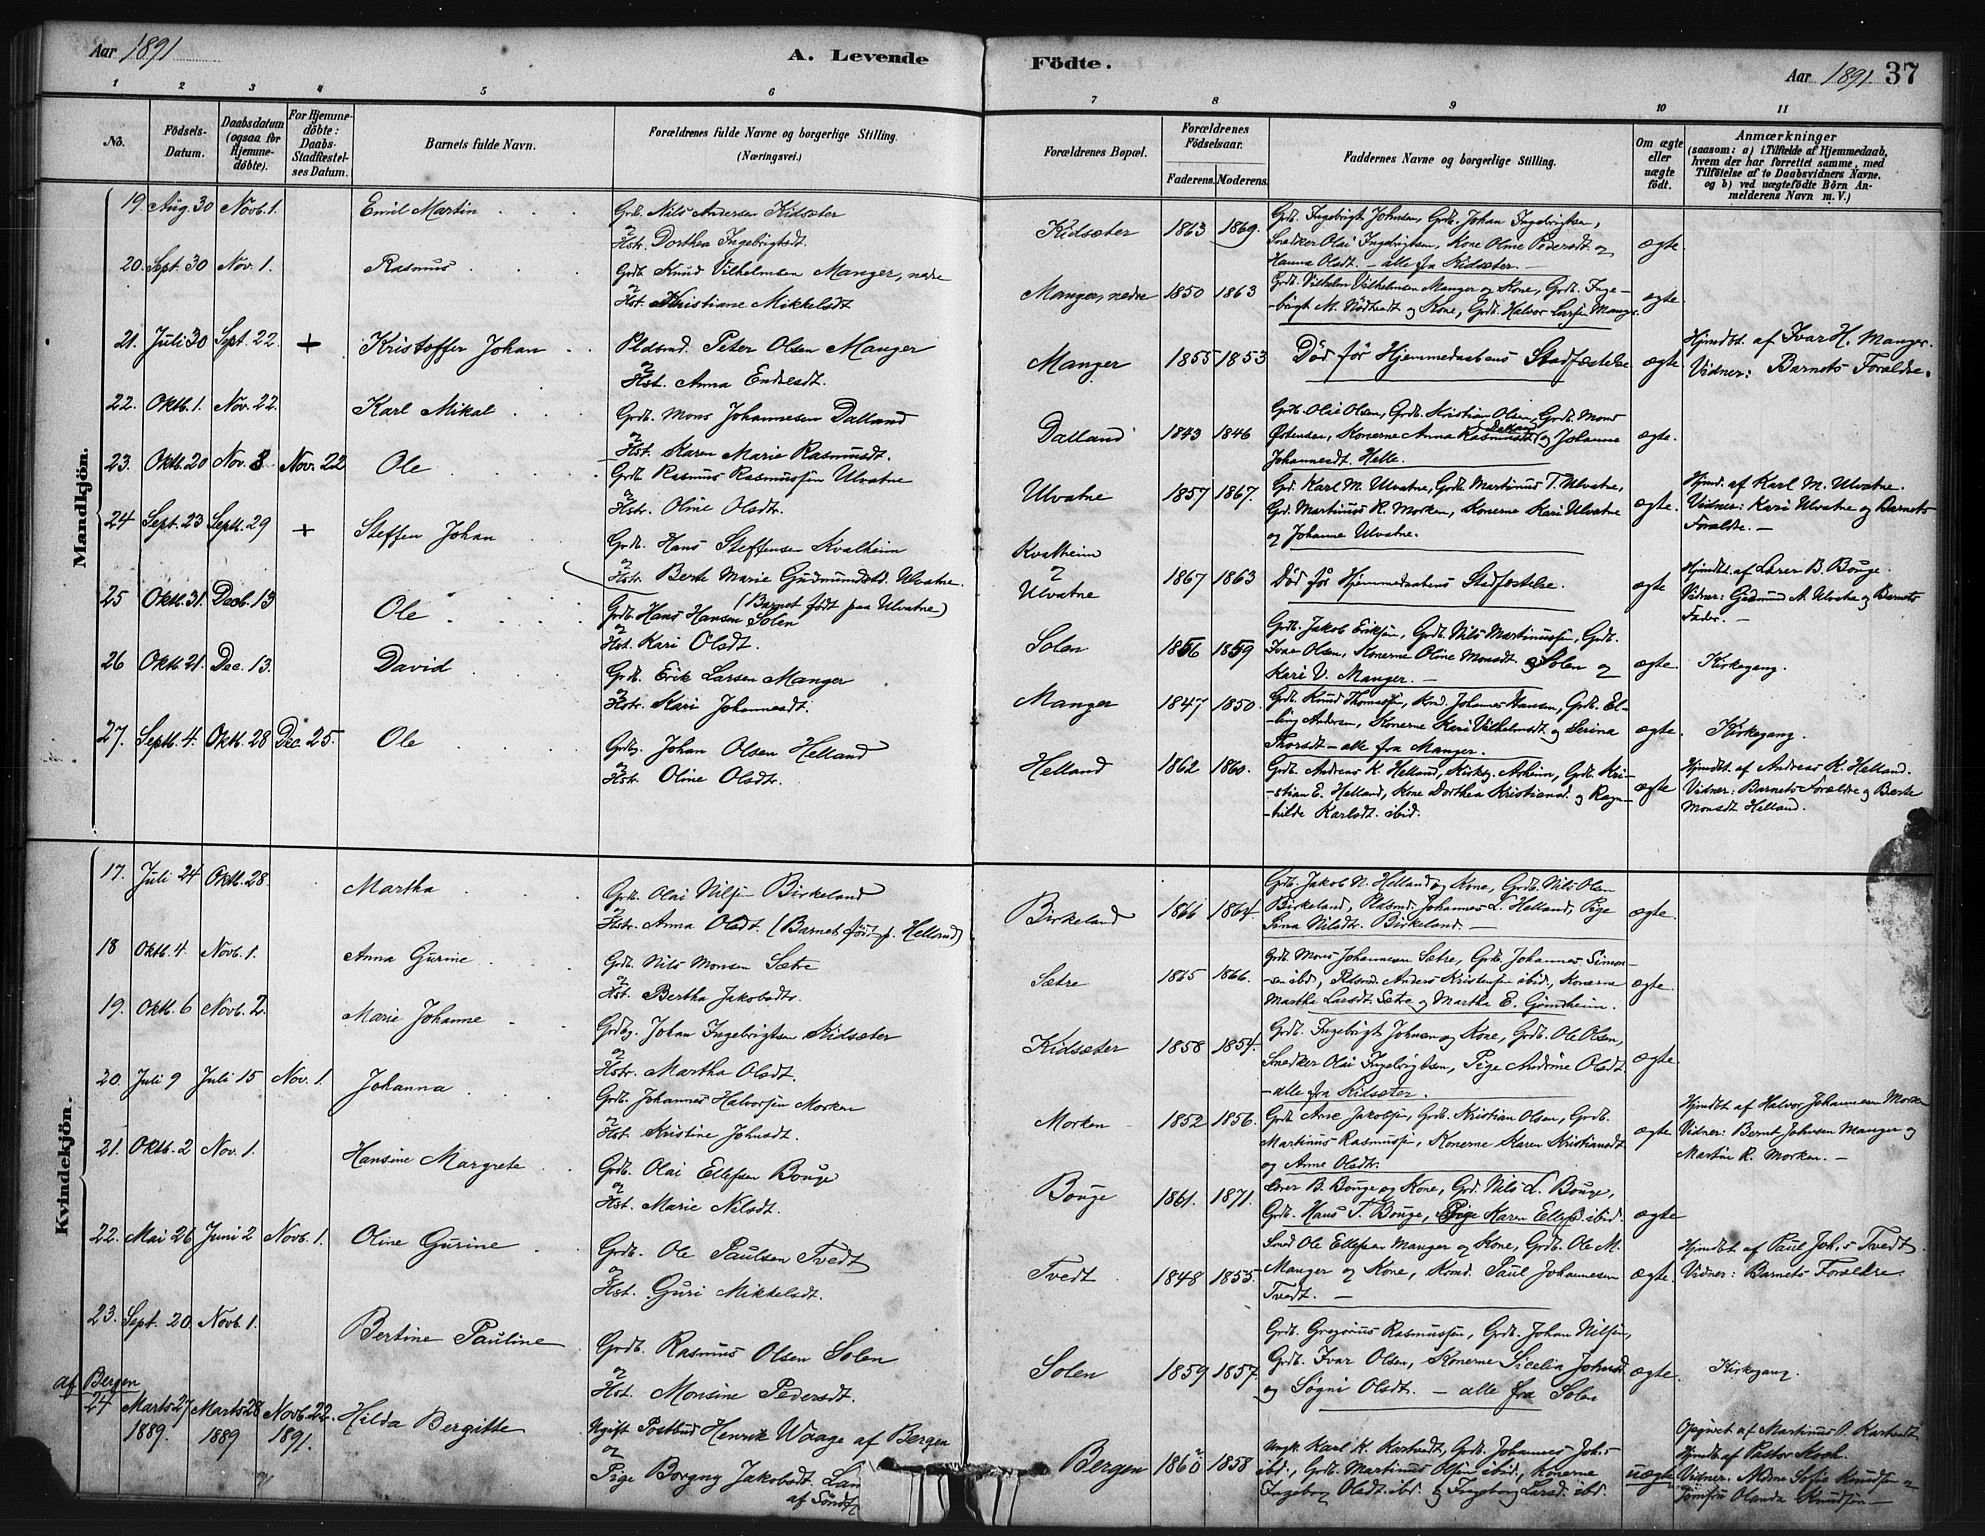 Aar 1891
A. Levende
Födte.
Aar 1891. 37
1 2 3 4 5 6 7 8 9 10 11
No.
Födsels-
Datum.
Daabsdatum
(ogsaa for
Hjemme-
döbte).
For Hjemme-
döbte:
Daabs-
Stadfæstel-
ses Datum.
Barnets fulde Navn.
Forældrenes fulde Navne og borgerlige Stilling.
(Næringsvei.)
Forældrenes Bopæl.
Forældrenes
Födselsaar.
Faderens. Moderens.
Faddernes Navne og borgerlige Stilling.
Om ægte
eller
uægte
födt.
Anmærkninger
(saasom: a) i Tilfælde af Hjemmedaab,
hvem der har forrettet samme, med
Tilföielse af to Daabsvidners Navne.
og b) ved uægtefödte Börn An-
melderens Navn m. V.)
Mandkjön.
19. Aug. 30 Novb. 1. Emil Martin
Grdb. Nils Andersen Kidsæter
og
Hstr. Dorthea Ingebrigtsdt.
Kidsæter 1863 1869.
Grdb. Ingebrigt Johnsen, Grdb. Johan Ingebrigtsen,
Snedker Olai Ingebrigtsen, Kone Oline Pedersdt. og
Hanna Olsdt. – alle fra Kidsæter. –
ægte.
20. Sept. 30 Nov. 1. Rasmus
Grdb. Knud Vilhelmsen Manger, nedre
og
Hst. Kristiane Mikkelsdt
Manger, nedre 1850 1863
Grdb. Vilhelm Vilhelmsen Manger og Kone, Grdb. Inge-
-brigt M. Nödtvedt og Kone, Grdb. Halvor Larsen Manger.
ægte.
21. Juli 30 Sept. 22. + Kristoffer Johan
Pladsmd. Peter Olsen Manger
og
Hst. Anna Endresdt.
Manger 1855 1853
Död för Hjemmedaabens Stadfæstelse
ægte.
Hjmdbt. af Ivar H. Manger.
Vidner: Barnets Forældre.
22. Oktb. 1. Nov. 22. Karl Mikal
Grdb. Mons Johannesen Dalland
og
Hst. Karen Marie Rasmusdt.
Dalland 1843 1846
Grdb. Olai Olsen, Grdb. Kristian Olsen, Grdb. Mons
Östensen, Konerne Anna Rasmusdtr. Dalland og Johanne
Johannesdt. Helle.
ægte.
23. Oktb. 20 Nov. 8 Nov. 22 Ole
Grdb. Rasmus Rasmussen Ulvatne
og
Hstr. Oline Olsdtr.
Ulvatne 1857 1867.
Gd. Karl M. Ulvatne, Grdb. Martinus T. Ulvatne,
Gd. Martinus R. Morken, Konerne Kari Ulvatne
og Johanne Ulvatne.
ægte.
Hjmd. af Karl M. Ulvatne.
Vidner: Kari Ulvatne og Barnets
Forældre. –
24 Sept. 23 Septb. 29 + Steffen Johan
Grdb. Hans Steffensen Kvalheim
og
Hstr. Berte Marie Gudmundsd. Ulvatne.
(Barnet födt paa Ulvatne)
Kvalheim
og
Ulvatne
1867 1863
Död för Hjemmedaabens Stadfæstelse.
ægte
Hjmdbt. af Lærer B. Bouge.
Vidner: Gudmund A. Ulvatne og Barnets
Fader. –
25 Oktb. 31. Decb. 13 Ole
Grdb. Hans Hansen Solen
og
Hst. Kari Olsdt.
Solen 1856 1859
Grdb. Jakob Eriksen, Grdb. Nils Martinussen, Grdb.
Ivar Olsen, Konerne Oline Monsdt. Solen og
Kari V. Manger. –
ægte. Kirkegang.
26 Oktb. 21. Dec. 13. David
Grdb. Erik Larsen Manger
og
Hstr. Kari Johannesdt.
Manger 1847 1850.
Grdb. Knud Thomassen, Kmd. Johannes Hansen, Grdb. El-
-ling Andersen, Konerne Kari Vilhelmsdt. og Serina
Thorsdt. – alle fra Manger.
ægte. Kirkegang.
27. Septb. 4. Oktb. 28 Dec. 25. Ole
Grdbg. Johan Olsen Helland
og
Hst. Oline Olsdtr.
Helland 1862 1860.
Grdb. Andreas K. Helland, Kirkeg. Asheim, Grdb. Kri-
-stian E. Helland, Kone Dorthea Kristiansd. og Ragn-
-hilde Karlsdt. ibid.
ægte
Hjmdbt. af Andreas K. Helland.
Vidner: Barnets Forældre og Berte
Monsdt Helland.
Kvindekjön.
17. Juli 24 Oktb. 28. Martha
Grdb. Olai Nilsen Birkeland
og
Hstr. Anna Olsdt. (Barnet födt p. Helland)
Birkeland 1866 1864.
Grdb. Jakob N. Helland og Kone, Grdb. Nils Olsen
Birkeland, Pladsmd. Johannes L. Helland, Pige
Sina Nilsdtr. Birkeland. –
ægte.
18 Oktb. 4. Novb. 1. Anna Gurine
Grdb. Nils Monsen Sætre
og
Hst. Bertha Jakobsdtr.
Sætre 1865 1866.
Grdb. Mons Johannesen Sætre, Grdb. Johannes Simon-
sen ibid, Pladsmd. Anders Kristensen ibid., Konerne
Martha Larsdt. Sætre og Martha E. Gjömsheim.
ægte.
19. Oktb. 6 Novb. 2. Marie Johanne
Grdbg. Johan Ingebrigtsen Kidsæter
og
Hstr. Martha Olsdt.
Kidsæter 1858 1854.
Grdb. Ingebrigt Johnsen og Kone, Grdb. Ole Olsen,
Snedker Olai Ingebrigtsen, Pige Andrine Olsdt
– alle fra Kidsæter.
ægte.
20. Juli 9 Juli 15 Nov. 1. Johanna
Grdb. Johannes Halvorsen Morken
og
Hst. Kristine Johnsdt.
Morken 1852 1856.
Grdb. Arne Jakobsen, Grdb. Kristian Olsen, Grdb.
Martinus Rasmussen, Konerne Karen Kristiansdt
og Anne Olsdtr.
ægte
Hjmdbt. af Halvor Johannesen Morken
Vidner: Bernt Johnsen Manger og
Martine R. Morken. –
21. Oktb. 2 Nov. 1. Hansine Margrete
Grdb. Olai Ellefsen Bouge
og
Hst. Marie Nilsdt.
Bouge 1861. 1871.
Lærer B. Bouge og Kone, Grd. Nils L. Bouge,
Grdb. Hans T. Bouge, Pige Karen Ellefsd. ibid.
ægte
22. Mai 26 Juni 2 Novb. 1. Oline Gurine
Grdb. Ole Paulsen Tvedt
og
Hst. Guri Mikkelsdt.
Tvedt 1848 1855.
Smed Ole Ellefsen Manger og Kone, Grdb. Ole M.
Manger og Kone, Kmd. Paul Johannesen
Tvedt. –
ægte
Hjmdbt. af Paul Joh.s Tvedt.
Vidner: Barnets Forældre
23. Sept. 20. Novb. 1. Bertine Pauline
Grdb. Rasmus Olsen Solen
og
Hst. Monsine Pedersdt.
Solen 1859 1857.
Grdb. Gregorius Rasmussen, Grdb. Johan Nilsen,
Grdb. Ivar Olsen, Konerne Sicelia Johnsd.
og Sögni Olsdt. – alle fra Solen
ægte. Kirkegang.
af Bergen
24 Marts 27 1889. Marts 28 1889 Novb. 22. 1891. Hilda Bergitte
Ugift Postbud Henrik Waage af Bergen
og
Pige Borgny Jakobsdt Lan
af Söndf
Bergen 1860 1858
Ungk. Karl K. Kartvedt, Grdb. Johannes Joh.s
ibd., Grdb. Martinus Olsen ibid., Konerne
Ingeborg Olsdt. ibd. og Ingeborg Larsd. ibd.
uægte
Opgivet af Martinus O. Kartvedt
Hjmdbt. af Pastor Koch.
Vidner: Mdme Sofie Knudsen og
Jomfru Olanda Knudsen –